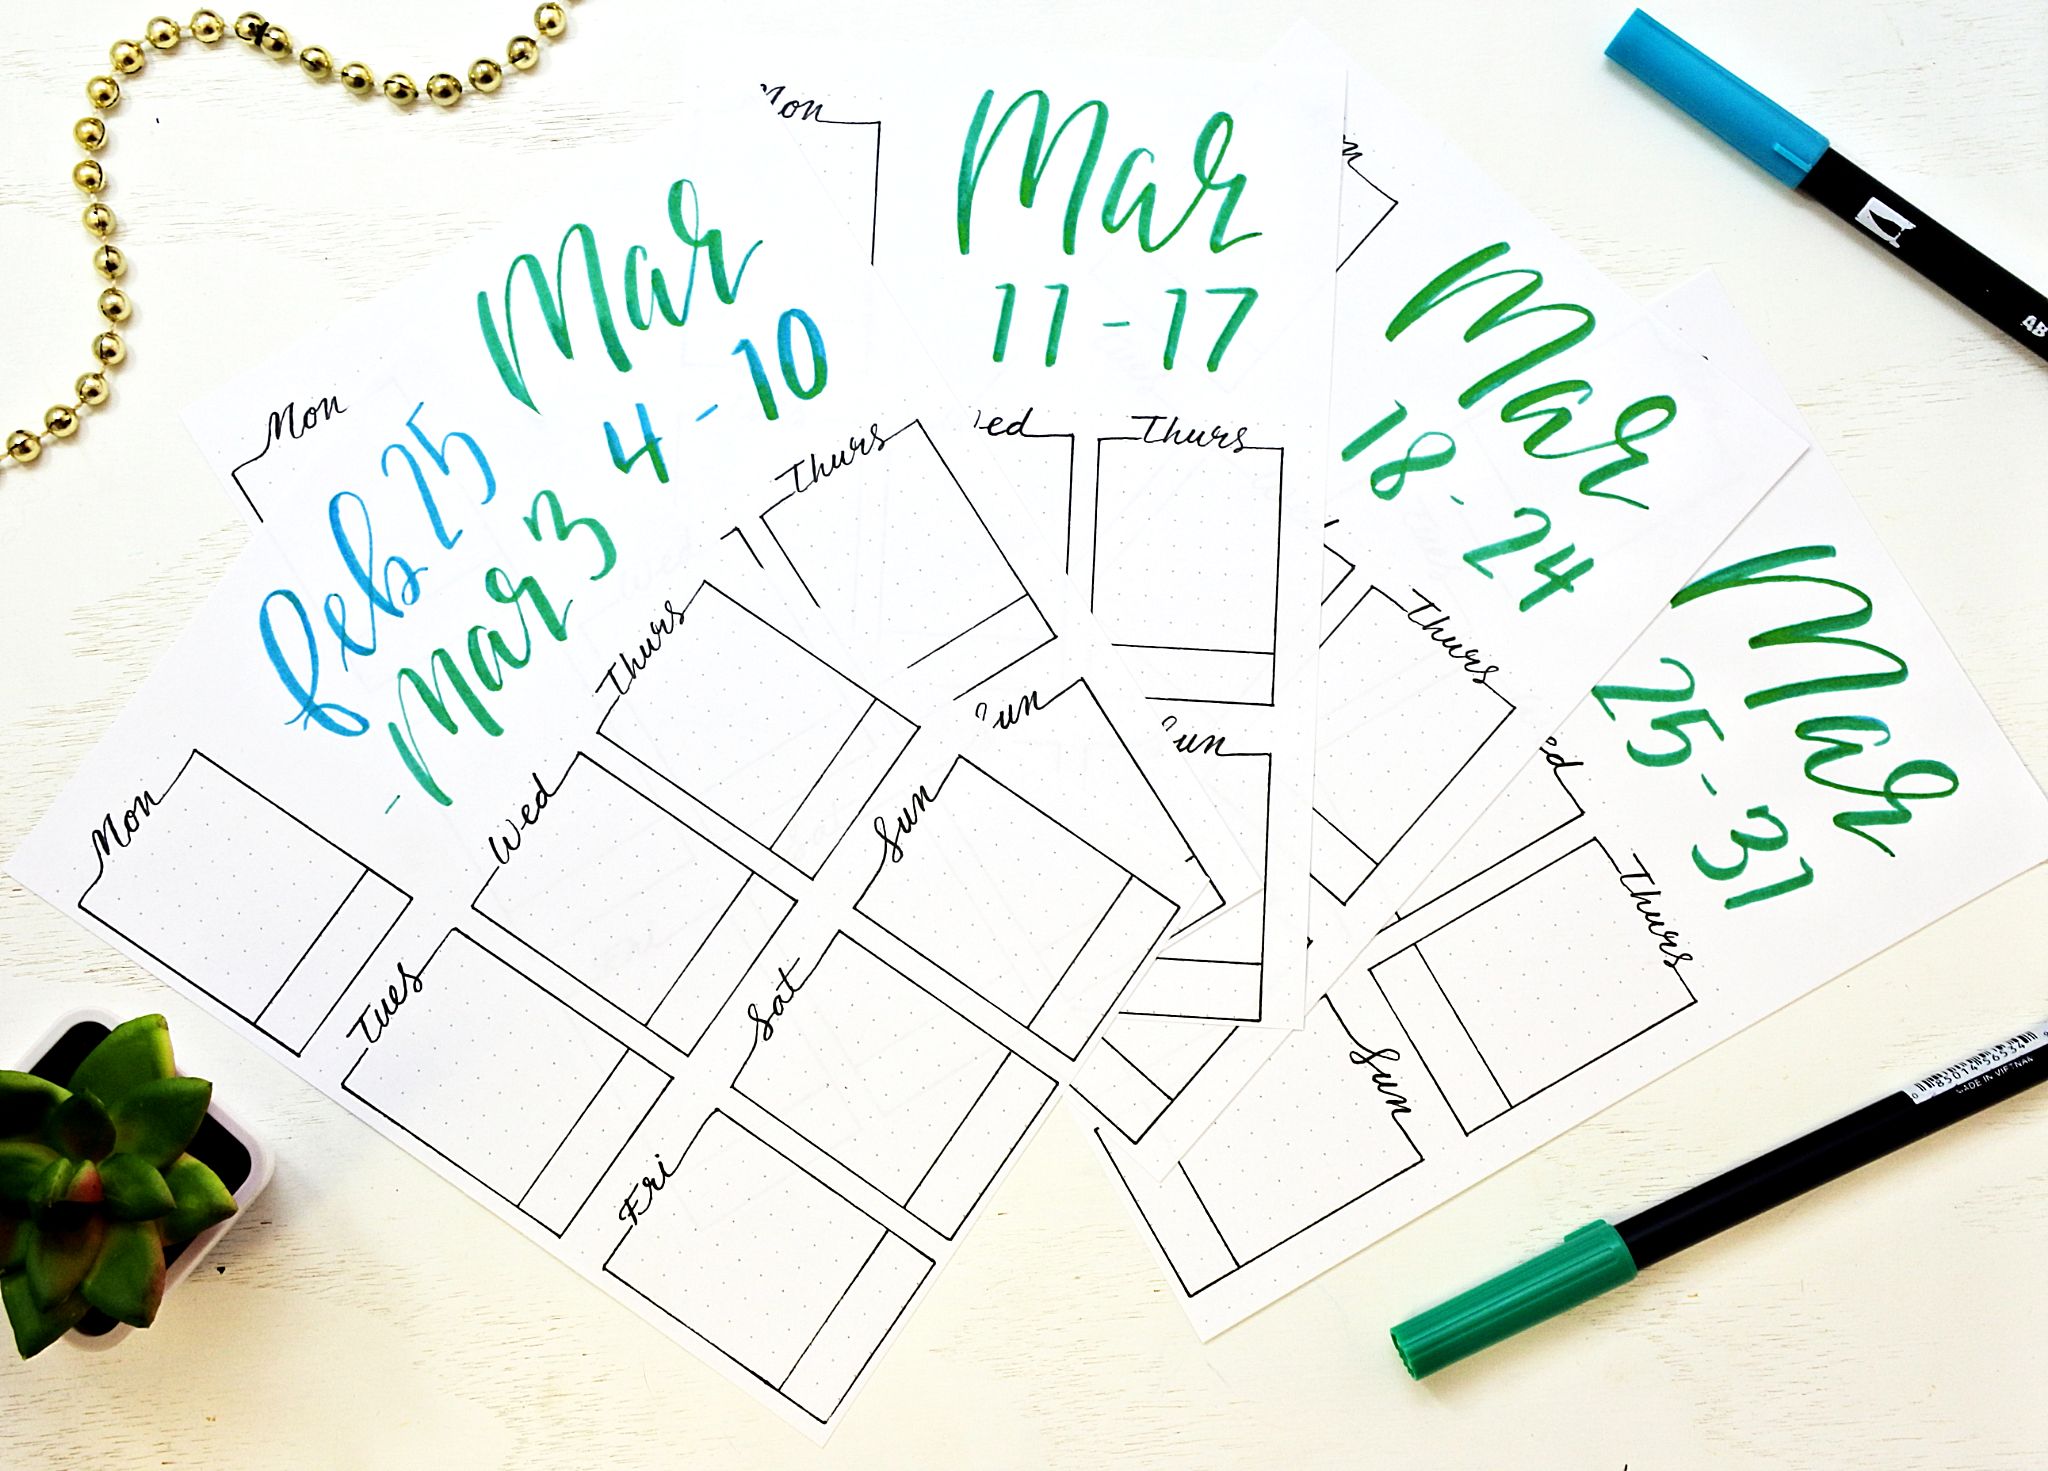 Mon
Feb 25
- Mar 3
Mon
Tues
Wed
Thurs
Fri
Sat
Sun
Mon
Mar
4 - 10
Thurs
Sun
Mon
Mar
11 - 17
ed
Thurs
un
n
Mar
18 - 24
Thurs
Mar
25 - 31
ed
Thurs
Sun
AB
MADE IN VIETNAM